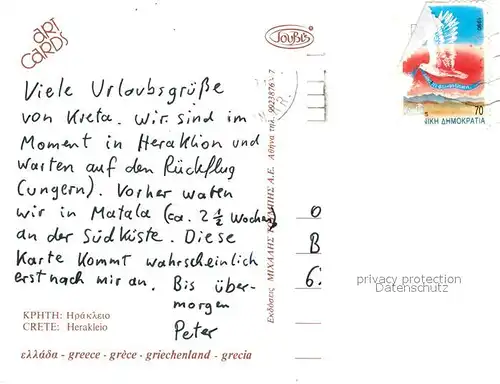 ART
CARDS
TOUBI'S
Viele Urlaubsgrüße
von Kreta. Wir sind im
Moment in Heraklion und
warten auf den Rückflug
(ungern). Vorher waren
wir in Matala (ca. 2 1/2 Wochen)
an der Südküste. Diese
Karte kommt wahrscheinlich
erst nach mir an. Bis über-
morgen
Peter
ΚΡΗΤΗ: Ηράκλειο
CRETE: Herakleio
ελλάδα - greece - grèce - griechenland - grecia
Εκδόσεις ΜΙΧΑΛΗΣ Α.Ε. Αθήνα τηλ. 9923876 - 7
1990
70
ΝΙΚΗ ΔΗΜΟΚΡΑΤΙΑ
O
B
6
privacy protection
Datenschutz